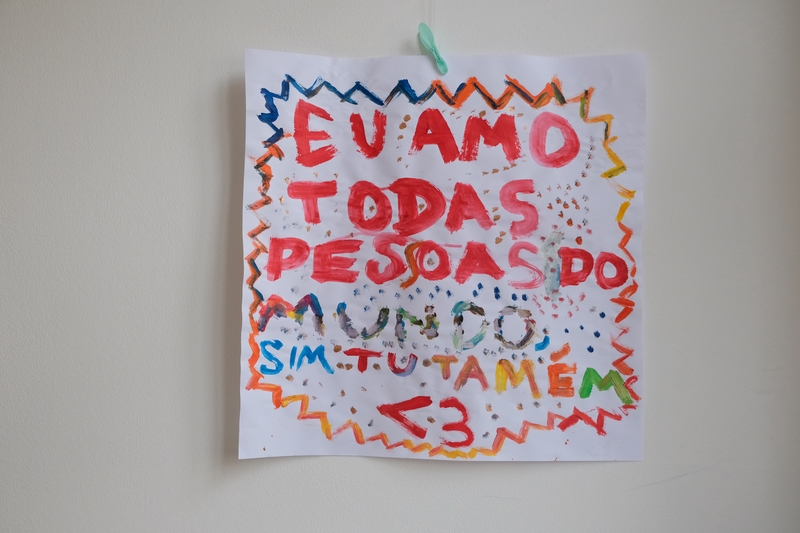 EU AMO
TODAS
PESSOAS DO
MUNDO,
SIM TU TAMÉM
<3